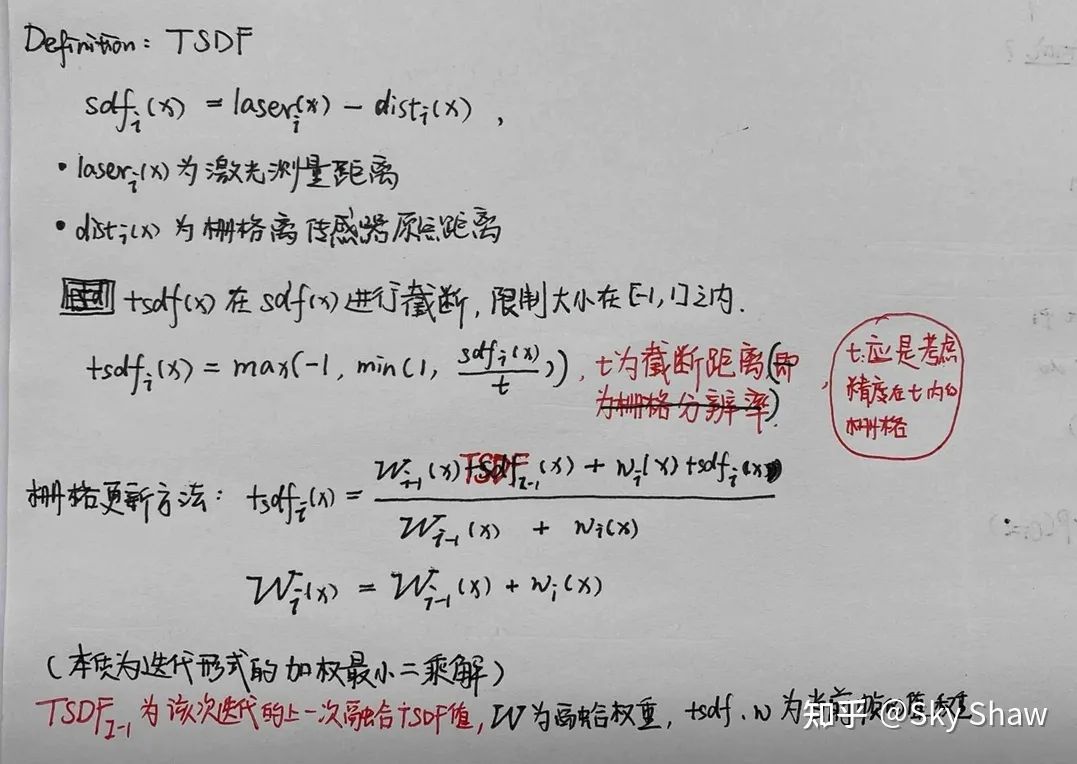 Definition: TSDF
sdfᵢ(x) = laserᵢ(x) − distᵢ(x),
• laserᵢ(x)为激光测量距离
• distᵢ(x)为栅格离传感器原点距离
tsdf(x)在sdf(x)进行截断,限制大小在[-1,1]之内.
tsdfᵢ(x) = max(-1, min(1, sdfᵢ(x)/t)), t为截断距离(即
为栅格分辨率).
t应是考虑
精度在t内的
栅格
栅格更新方法: tsdfᵢ(x) = (Wᵢ₋₁(x)TSDFᵢ₋₁(x) + wᵢ(x)tsdfᵢ(x)) / (Wᵢ₋₁(x) + wᵢ(x))
Wᵢ(x) = Wᵢ₋₁(x) + wᵢ(x)
(本质为迭代形式的加权最小二乘解)
TSDFᵢ₋₁为该次迭代的上一次融合TSDF值, W为融合权重, tsdf、w为当前
知乎 @Sky Shaw